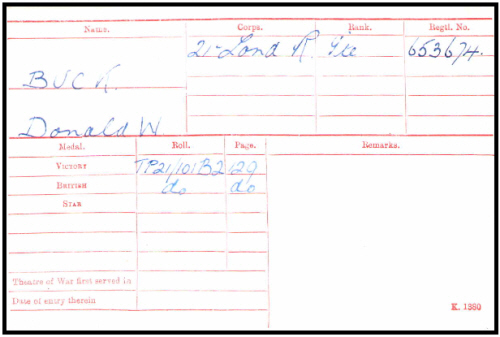 Name. Corps. Rank. Regtl. No.
21-Lond R. Pte 653674.
BUCK.
Donald W
Medal. Roll. Page. Remarks.
VICTORY TP21/101B2 129
BRITISH do do
STAR
Theatre of War first served in
Date of entry therein
K. 1380